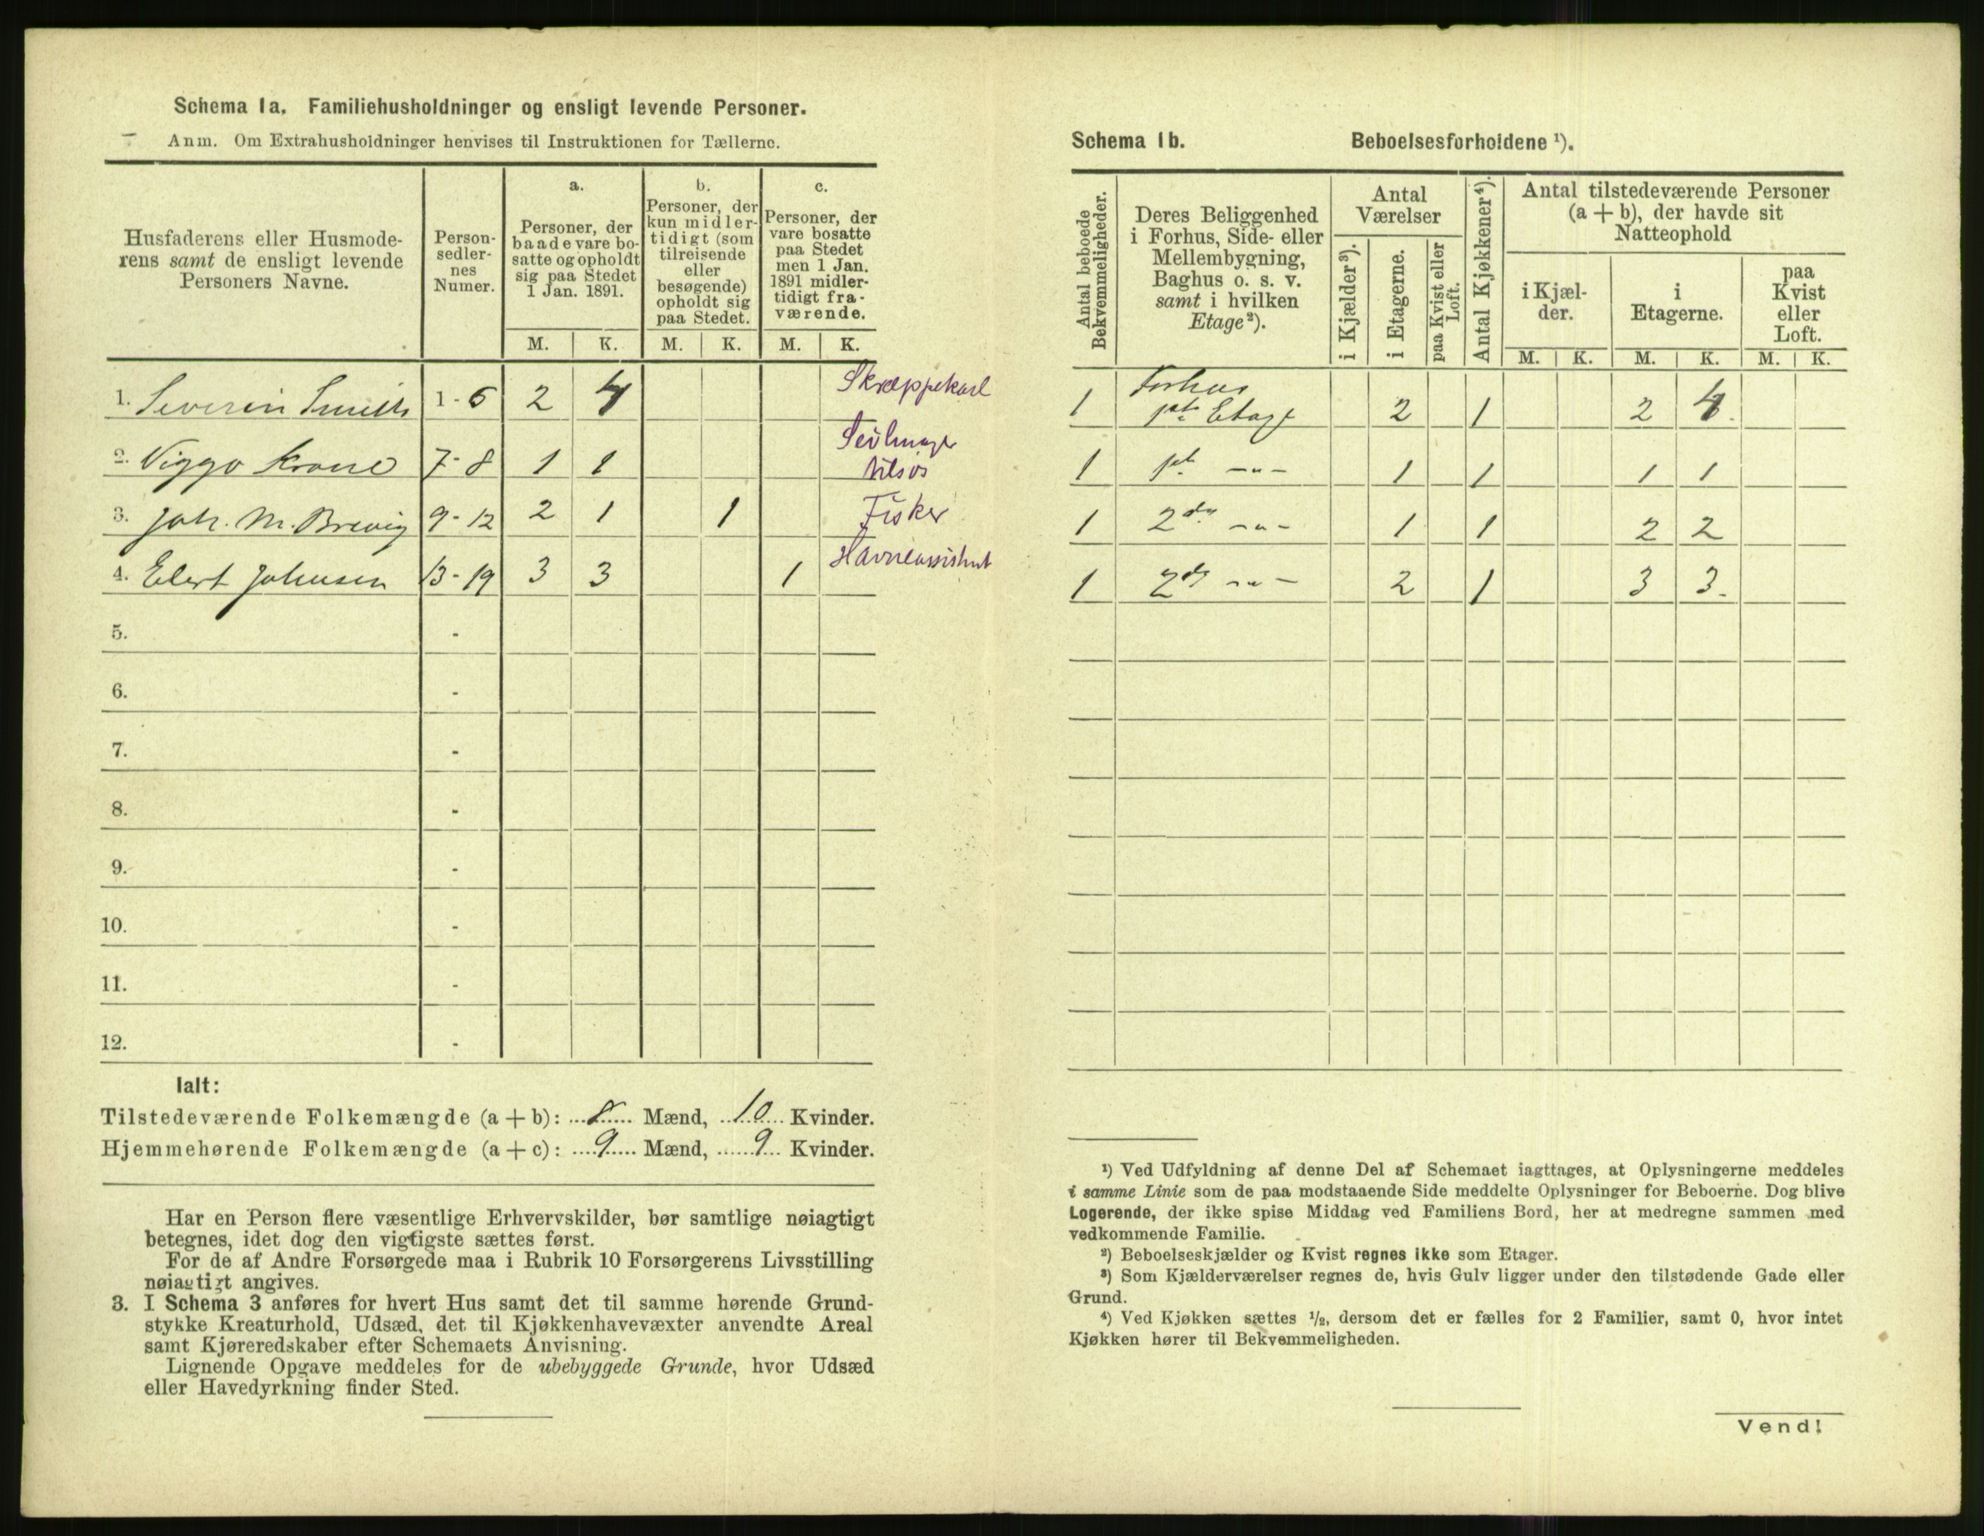 Schema 1a. Familiehusholdninger og ensligt levende Personer.
Anm. Om Extrahusholdninger henvises til Instruktionen for Tællerne.
Husfaderens eller Husmode-
rens samt de ensligt levende
Personers Navne.
Person-
sedler-
nes
Numer.
a.
Personer, der
baade vare bo-
satte og opholdt
sig paa Stedet
1 Jan. 1891.
b.
Personer, der
kun midler-
tidigt (som
tilreisende
eller
besøgende)
opholdt sig
paa Stedet.
c.
Personer, der
vare bosatte
paa Stedet
men 1 Jan.
1891 midler-
tidigt fra-
værende.
M. K. M. K. M. K.
1. Severin Smith 1 - 6 2 4 Skræppekarl
2. Viggo Krane 7 - 8 1 1 Seilmager tilsøs
3. Joh. M. Brevig 9 - 12 2 1 1 Fisker
4. Elert Johnsen 13 - 19 3 3 1 Havneassistent
5. -
6. -
7. -
8. -
9. -
10. -
11. -
12. -
Ialt:
Tilstedeværende Folkemængde (a + b): 8 Mænd, 10 Kvinder.
Hjemmehørende Folkemængde (a + c): 9 Mænd, 9 Kvinder.
Har en Person flere væsentlige Erhvervskilder, bør samtlige nøiagtigt
betegnes, idet dog den vigtigste sættes først.
For de af Andre Forsørgede maa i Rubrik 10 Forsørgerens Livsstilling
nøiagtigt angives.
3. I Schema 3 anføres for hvert Hus samt det til samme hørende Grund-
stykke Kreaturhold, Udsæd, det til Kjøkkenhavevæxter anvendte Areal
samt Kjøreredskaber efter Schemaets Anvisning.
Lignende Opgave meddeles for de ubebyggede Grunde, hvor Udsæd
eller Havedyrkning finder Sted.
Schema 1b. Beboelsesforholdene ¹).
Antal beboede
Bekvemmeligheder.
Deres Beliggenhed
i Forhus, Side- eller
Mellembygning,
Baghus o. s. v.
samt i hvilken
Etage²).
Antal
Værelser
i Kjælder³).
i Etagerne.
paa Kvist eller
Loft.
Antal Kjøkkener⁴).
Antal tilstedeværende Personer
(a + b), der havde sit
Natteophold
i Kjæl-
der.
i
Etagerne.
paa
Kvist
eller
Loft.
M. K. M. K. M. K.
1 Forhus
1ste Etage 2 1 2 4
1 1st -"- 1 1 1 1
1 2den -"- 1 1 2 2
1 2d -"- 2 1 3 3
¹) Ved Udfyldning af denne Del af Schemaet iagttages, at Oplysningerne meddeles
i samme Linie som de paa modstaaende Side meddelte Oplysninger for Beboerne. Dog blive
Logerende, der ikke spise Middag ved Familiens Bord, her at medregne sammen med
vedkommende Familie.
²) Beboelseskjælder og Kvist regnes ikke som Etager.
³) Som Kjælderværelser regnes de, hvis Gulv ligger under den tilstødende Gade eller
Grund.
⁴) Ved Kjøkken sættes ½, dersom det er fælles for 2 Familier, samt 0, hvor intet
Kjøkken hører til Bekvemmeligheden.
Vend!